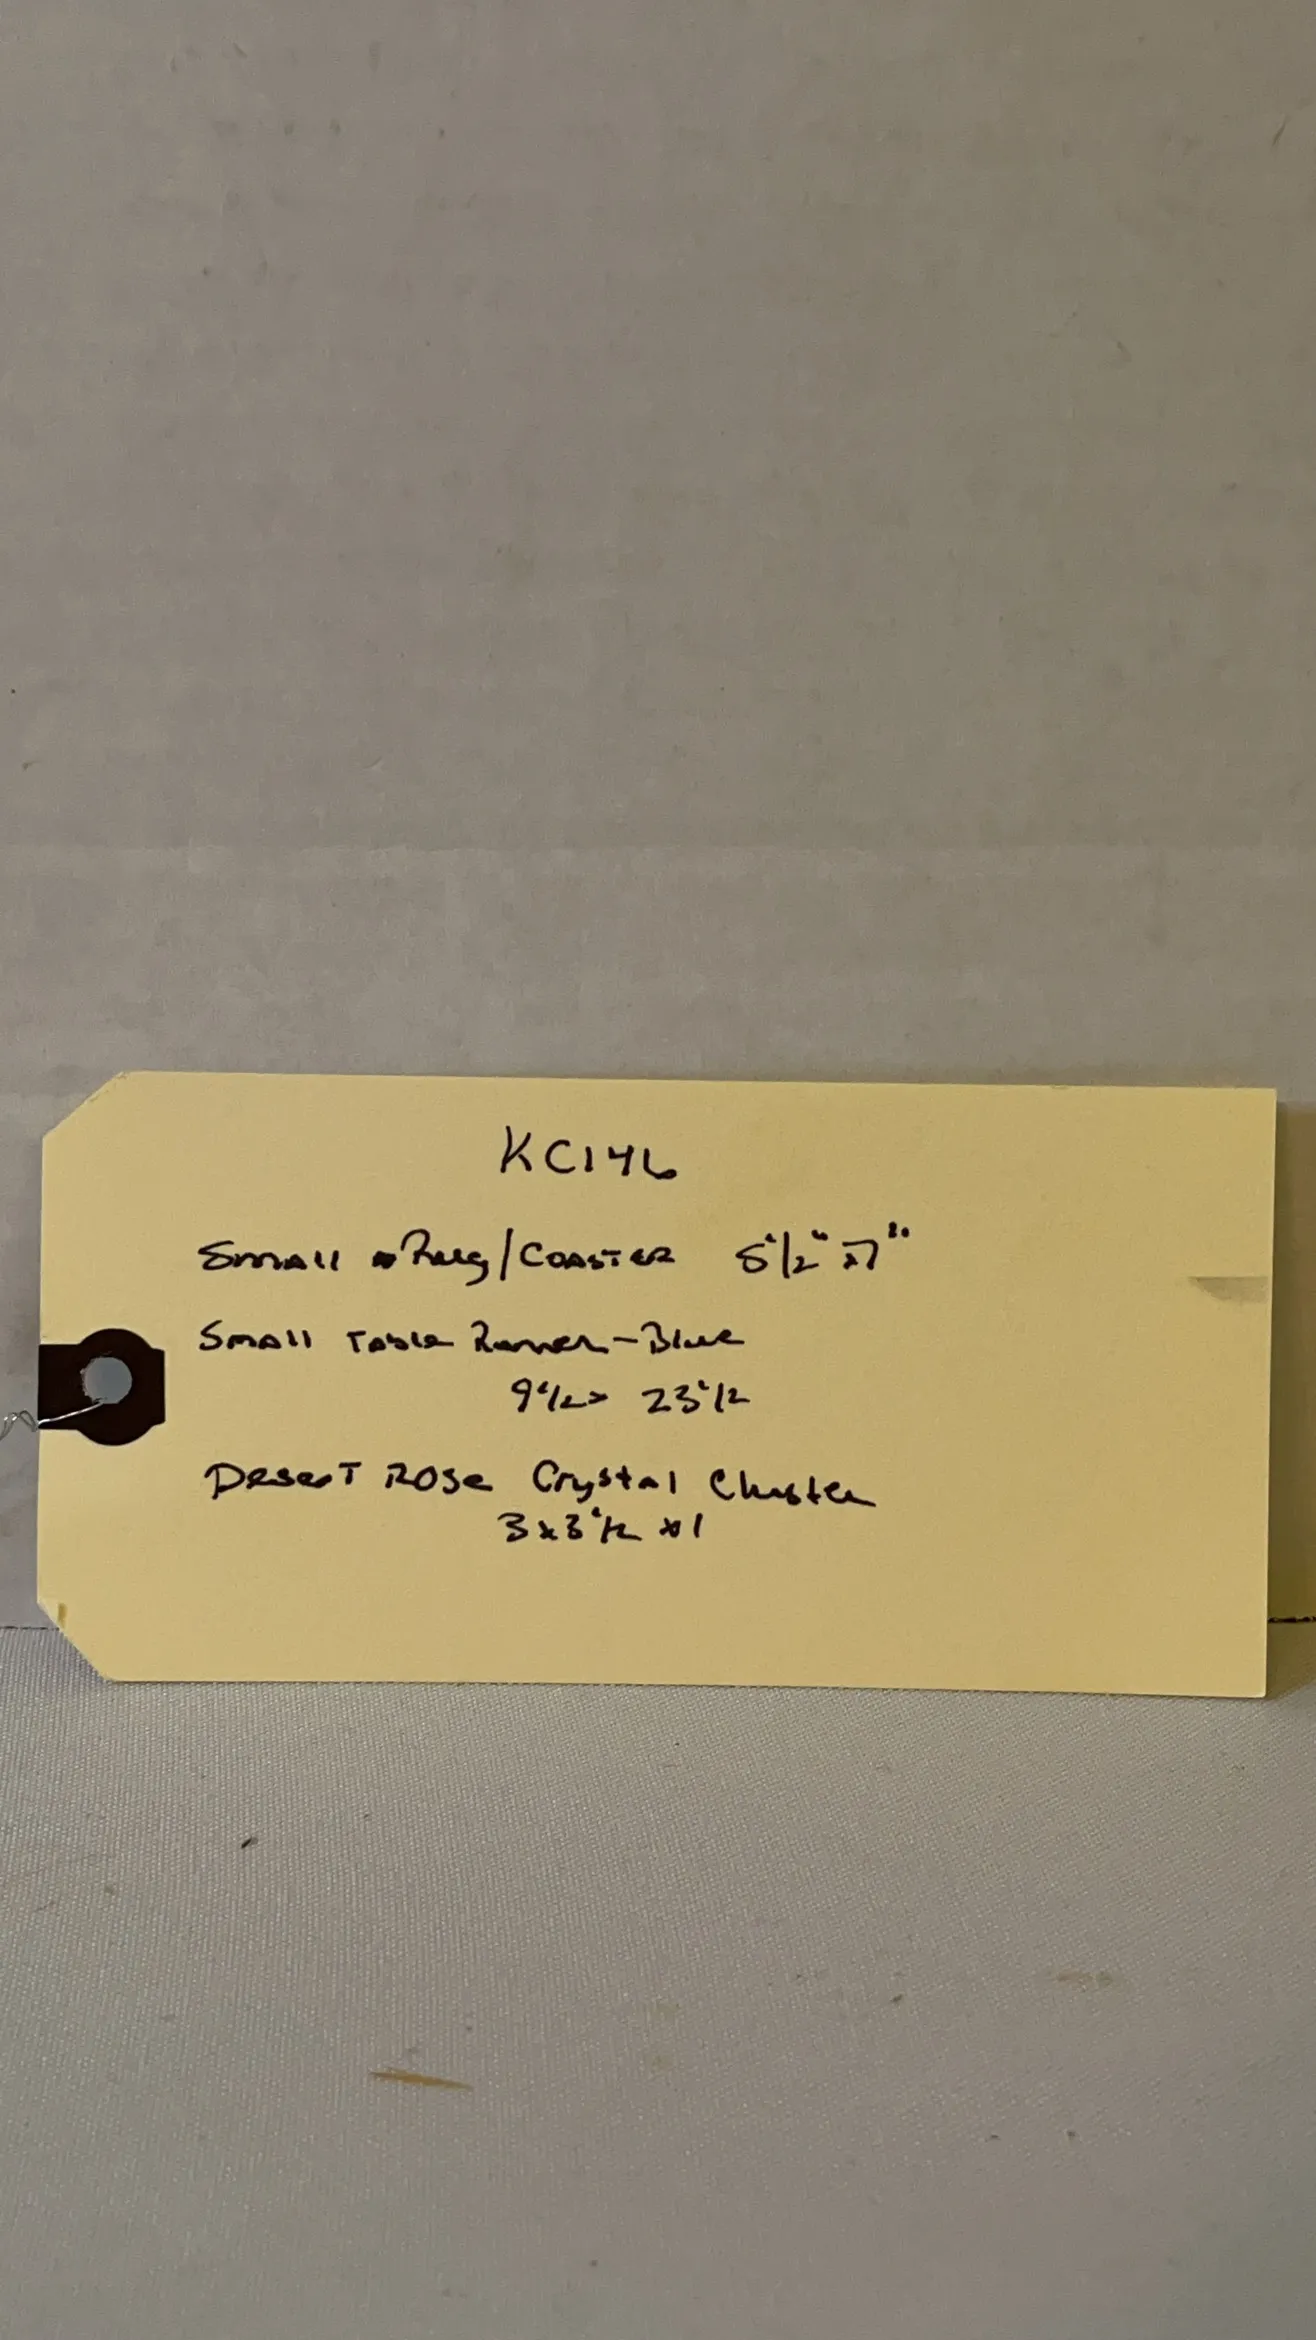 KC146
Small Rug/Coaster 5 1/2" x 7"
Small Table Runner - Blue
9 1/2 x 23 1/2
Desert Rose Crystal Cluster
3 x 3 1/2 x 1